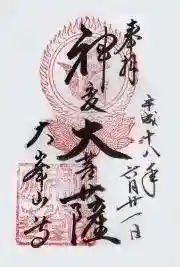 奉拝
平成十八年
六月廿一日
神変大菩薩
大峯山寺